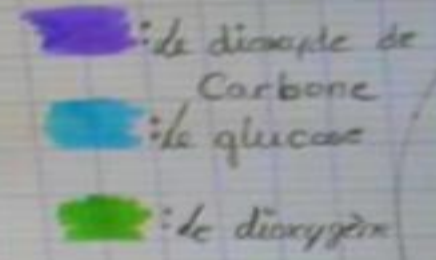 : le dioxyde de
Carbone
: le glucose
: le dioxygène